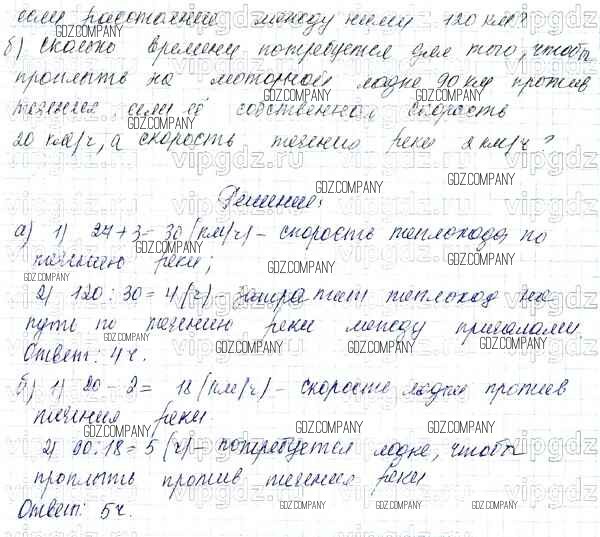 если расстояние между ними 120 км?
б) сколько времени потребуется для того, чтобы
проплыть на моторной лодке 90 км против
течения, если её собственная скорость
20 км/ч, а скорость течения реки 2 км/ч?
Решение:
а) 1) 27 + 3 = 30 (км/ч) – скорость теплохода по
течению реки;
2) 120 : 30 = 4 (ч) затратит теплоход на
пути по течению реки между причалами.
Ответ: 4 ч.
б) 1) 20 – 2 = 18 (км/ч) – скорость лодки против
течения реки.
2) 90:18 = 5 (ч) – потребуется лодке, чтобы
проплыть против течения реки
Ответ: 5 ч.